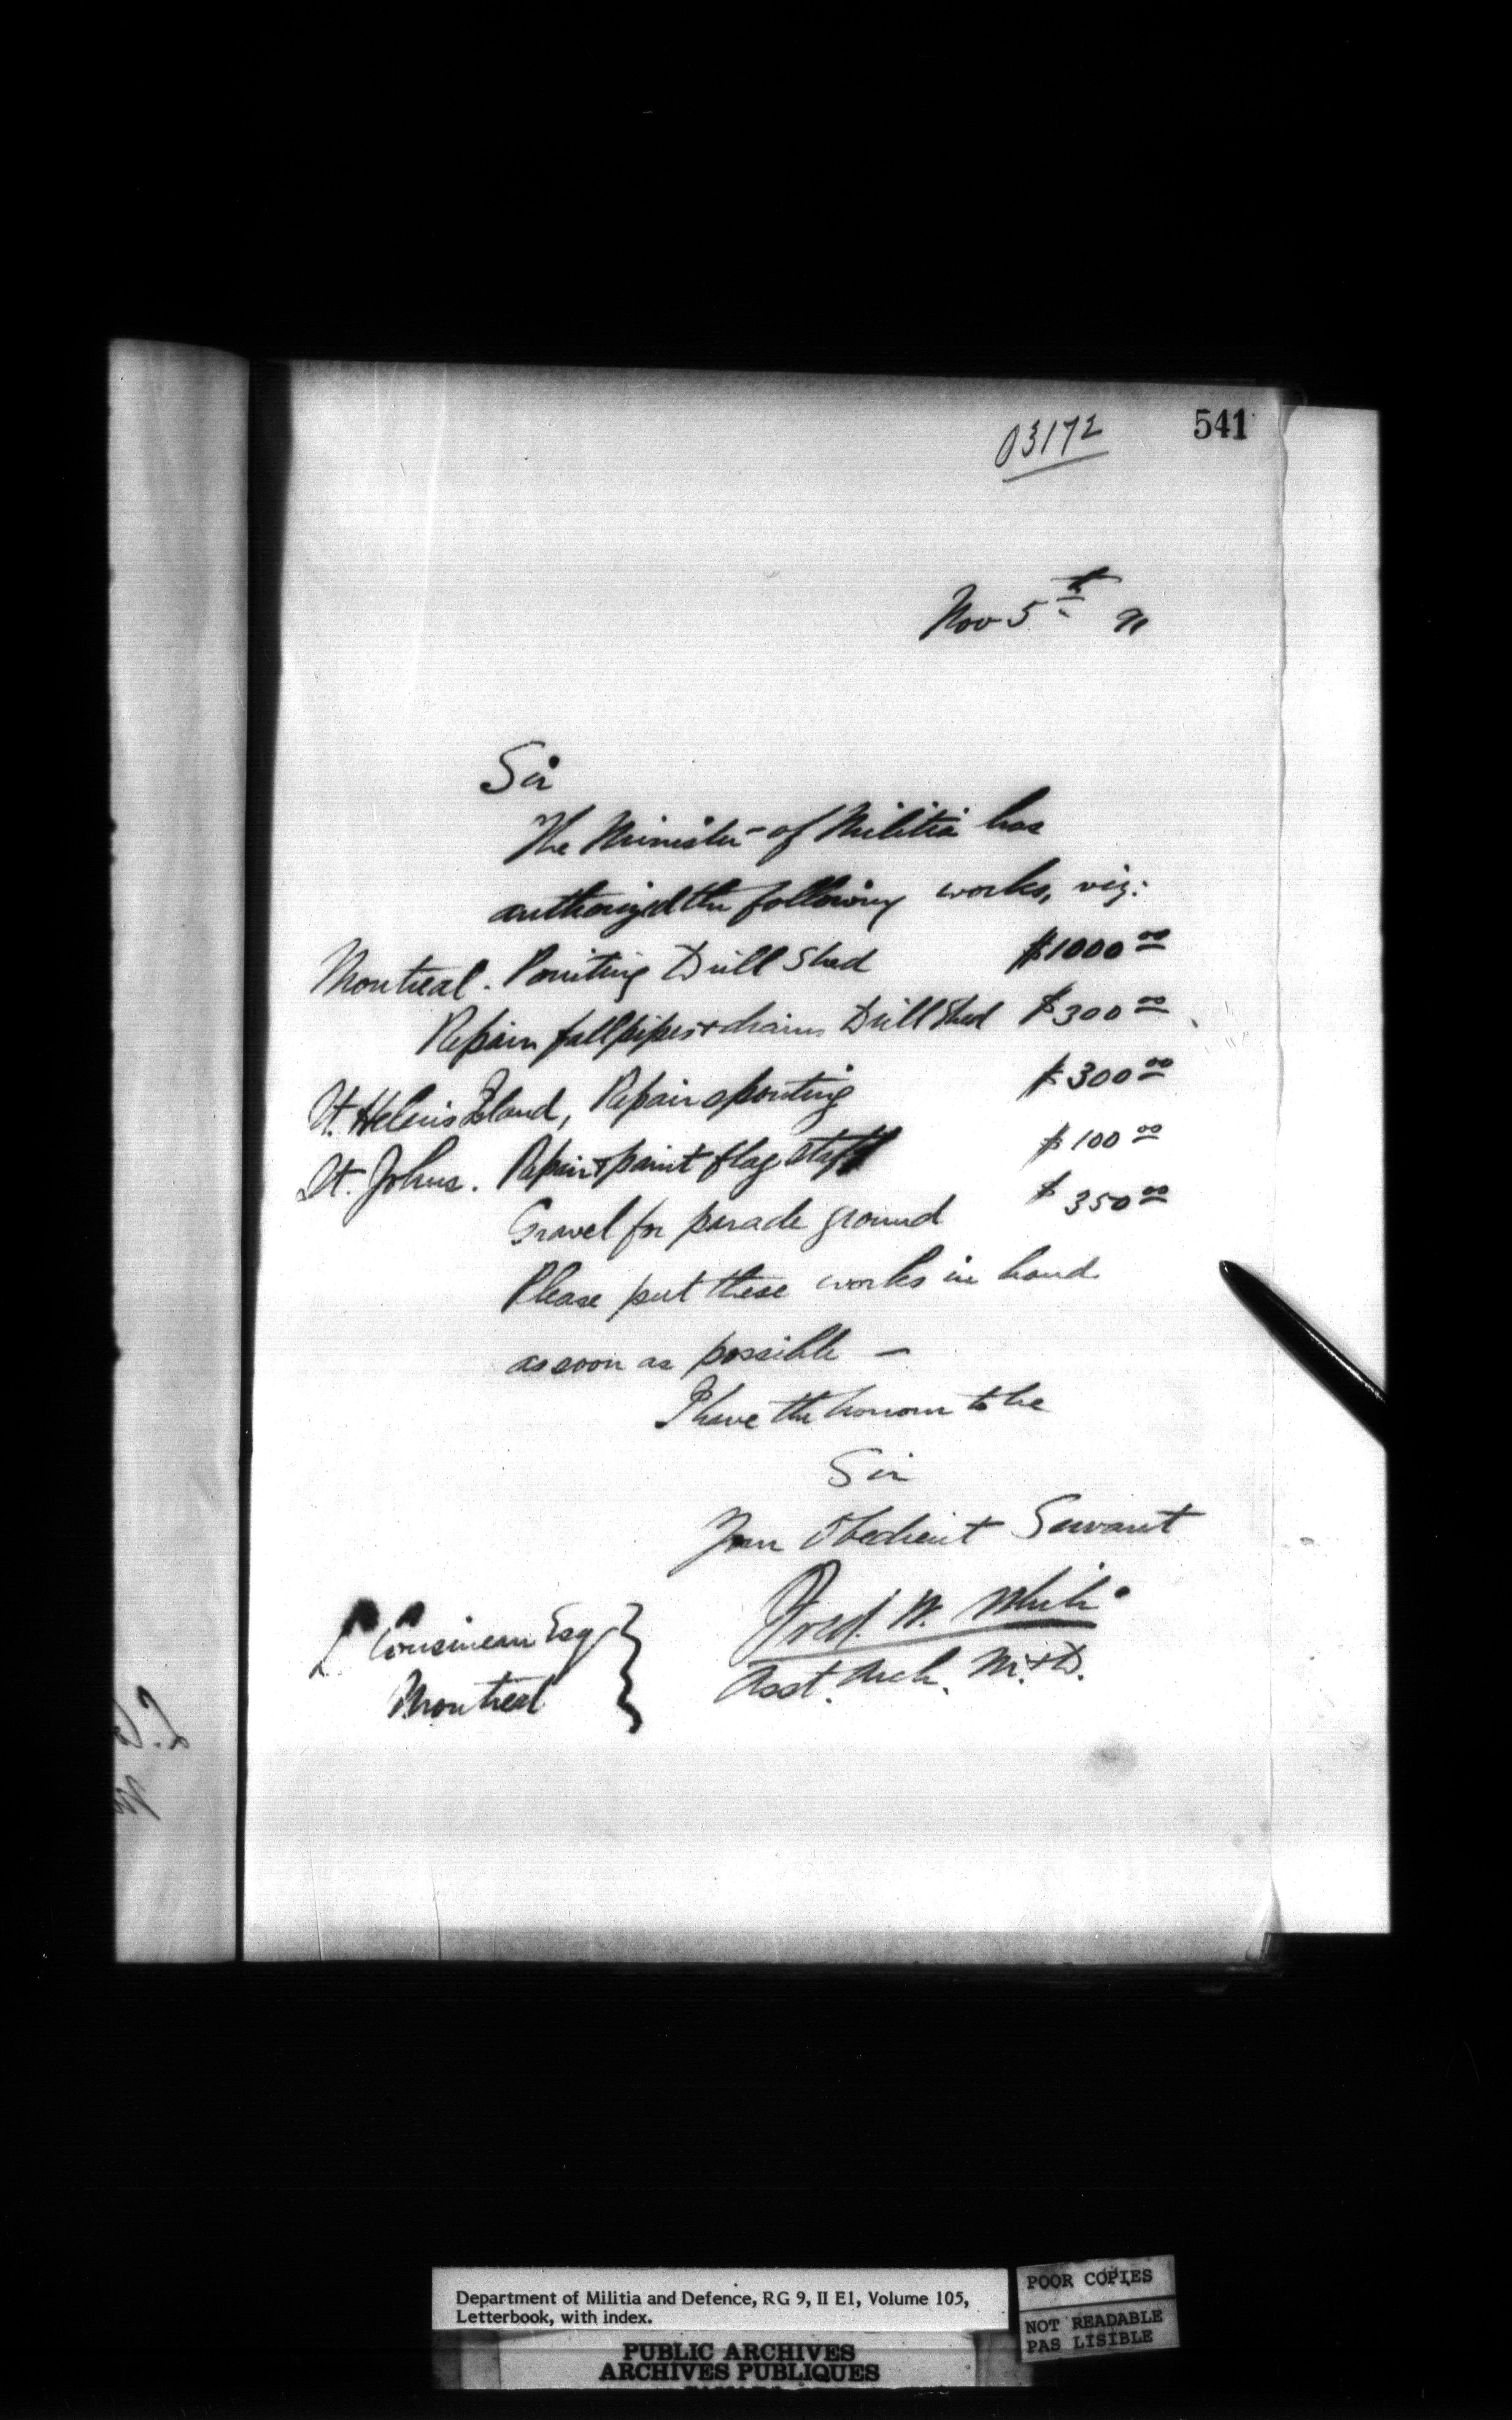 541
03172
Nov 5th 91
Sir
The Minister of Militia has
authorized the following works, viz:
Montreal. Pointing Drill Shed $1000 00
Repair fall pipes & drains Drill Shed $300 00
St. Helen's Island, Repair spouting $300 00
St. Johns. Repair & paint flag staff $100 00
Gravel for parade ground $350 00
Please put these works in hand
as soon as possible —
I have the honour to be
Sir
Your Obedient Servant
Fred. W. White
Asst. Arch. M. & D.
L Cousineau Esq
Montreal
Department of Militia and Defence, RG 9, II E1, Volume 105,
Letterbook, with index.
POOR COPIES
NOT READABLE
PAS LISIBLE
PUBLIC ARCHIVES
ARCHIVES PUBLIQUES